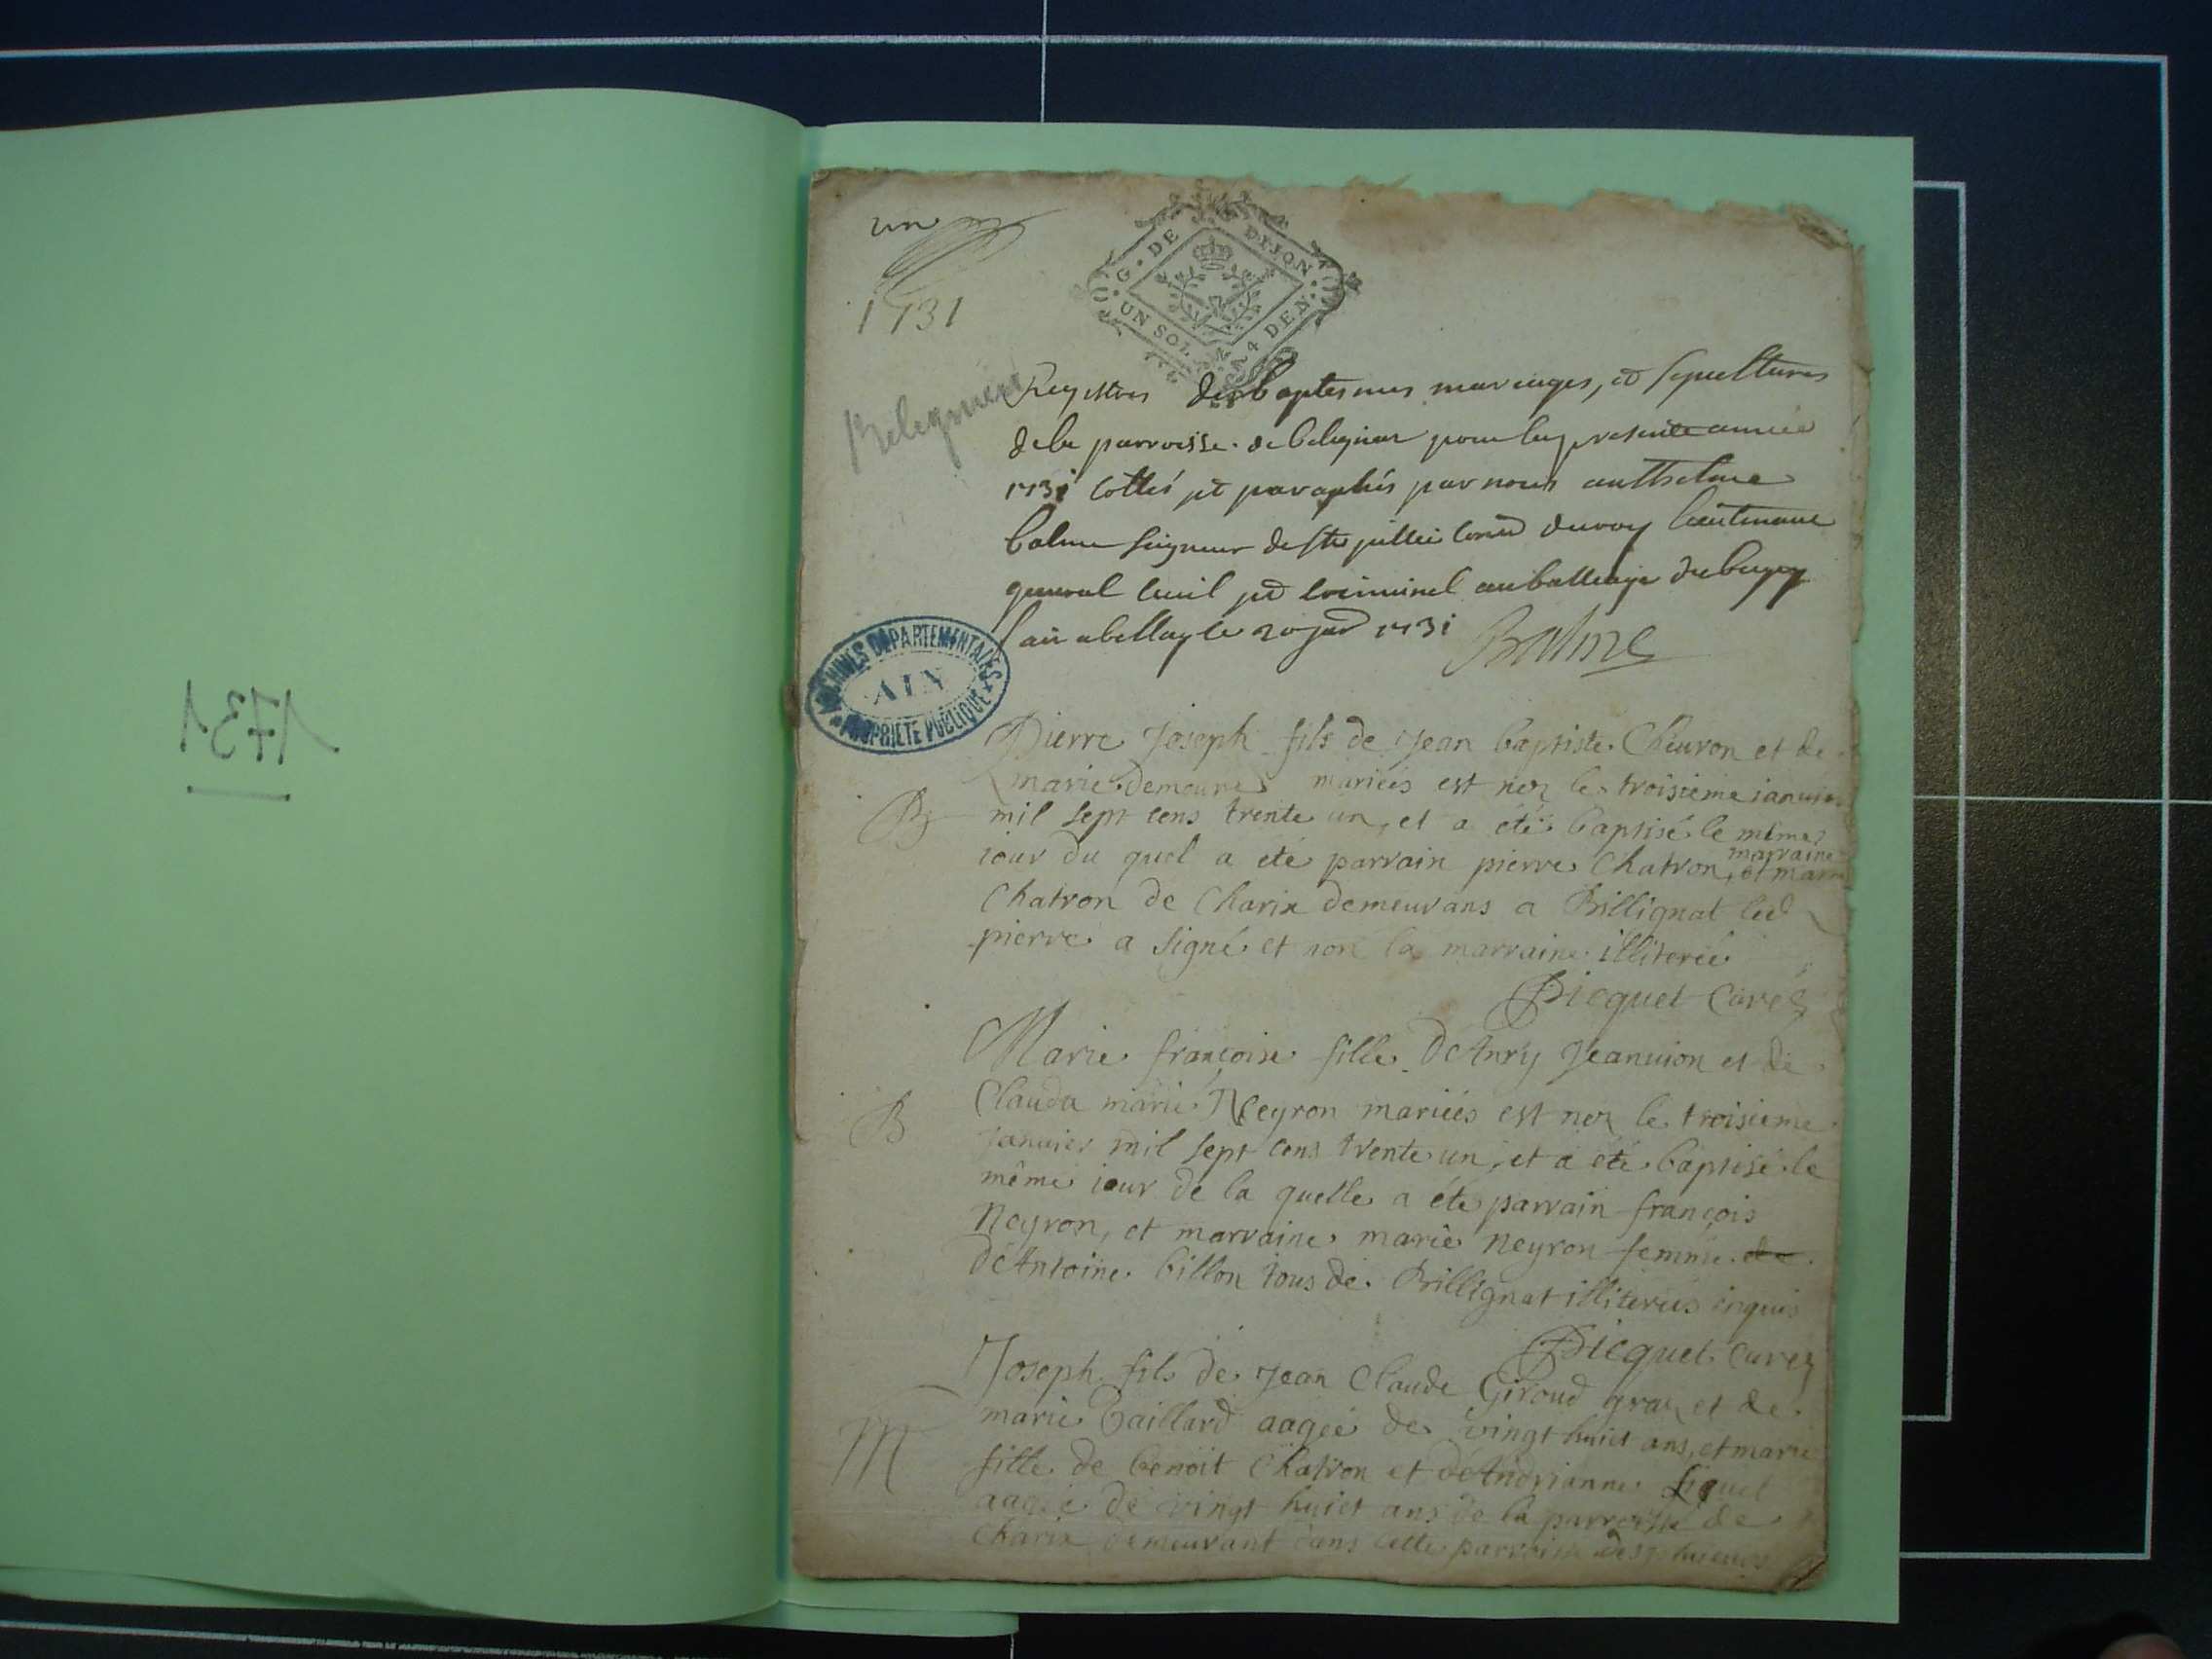 1731
un
1731
G. DE DIJON
UN SOL 4 DEN.
Belegneu
Registres des baptesmes mariages, et sepultures
de la parroisse de belignat pour la presente année
1731 cottés et paraphés par nous anthelme
balme seigneur de Ste jullie du roy lieutenant
general civil et criminel au balliage du bugey
fait a bellay le 20 1731 Balme
ARCHIVES DÉPARTEMENTALES
AIN
PROPRIÉTÉ PUBLIQUE
Pierre Joseph fils de Jean baptiste Cheuron et de
marie demoune mariées est nez le troisieme ianuier
B
mil sept cens trente un, et a été baptisé le même
iour du quel a eté parrain pierre Chatron, et marraine marie
Chatron de Charix demeurans a Billignat led
pierre a signé et non la marraine illiterée
Picquet Curez
Marie françoise fille d'Anry Jeanuion et de
Clauda marie Neyron mariées est nez le troisieme
B
Januier mil sept cens trente un, et a été baptisé le
même iour de la quelle a été parrain françois
Neyron, et marraine marie neyron femme de
d'Antoine billon tous de Billignat illiterées enquis
Picquet Curez
Joseph fils de Jean Claude Giroud graz et de
marie Taillard aagée de vingt huict ans, et marie
M
fille de benoit Chatron et d'Andrianne
aagée de vingt huict ans de la parroisse de
Charix demeurant dans cette parroisse